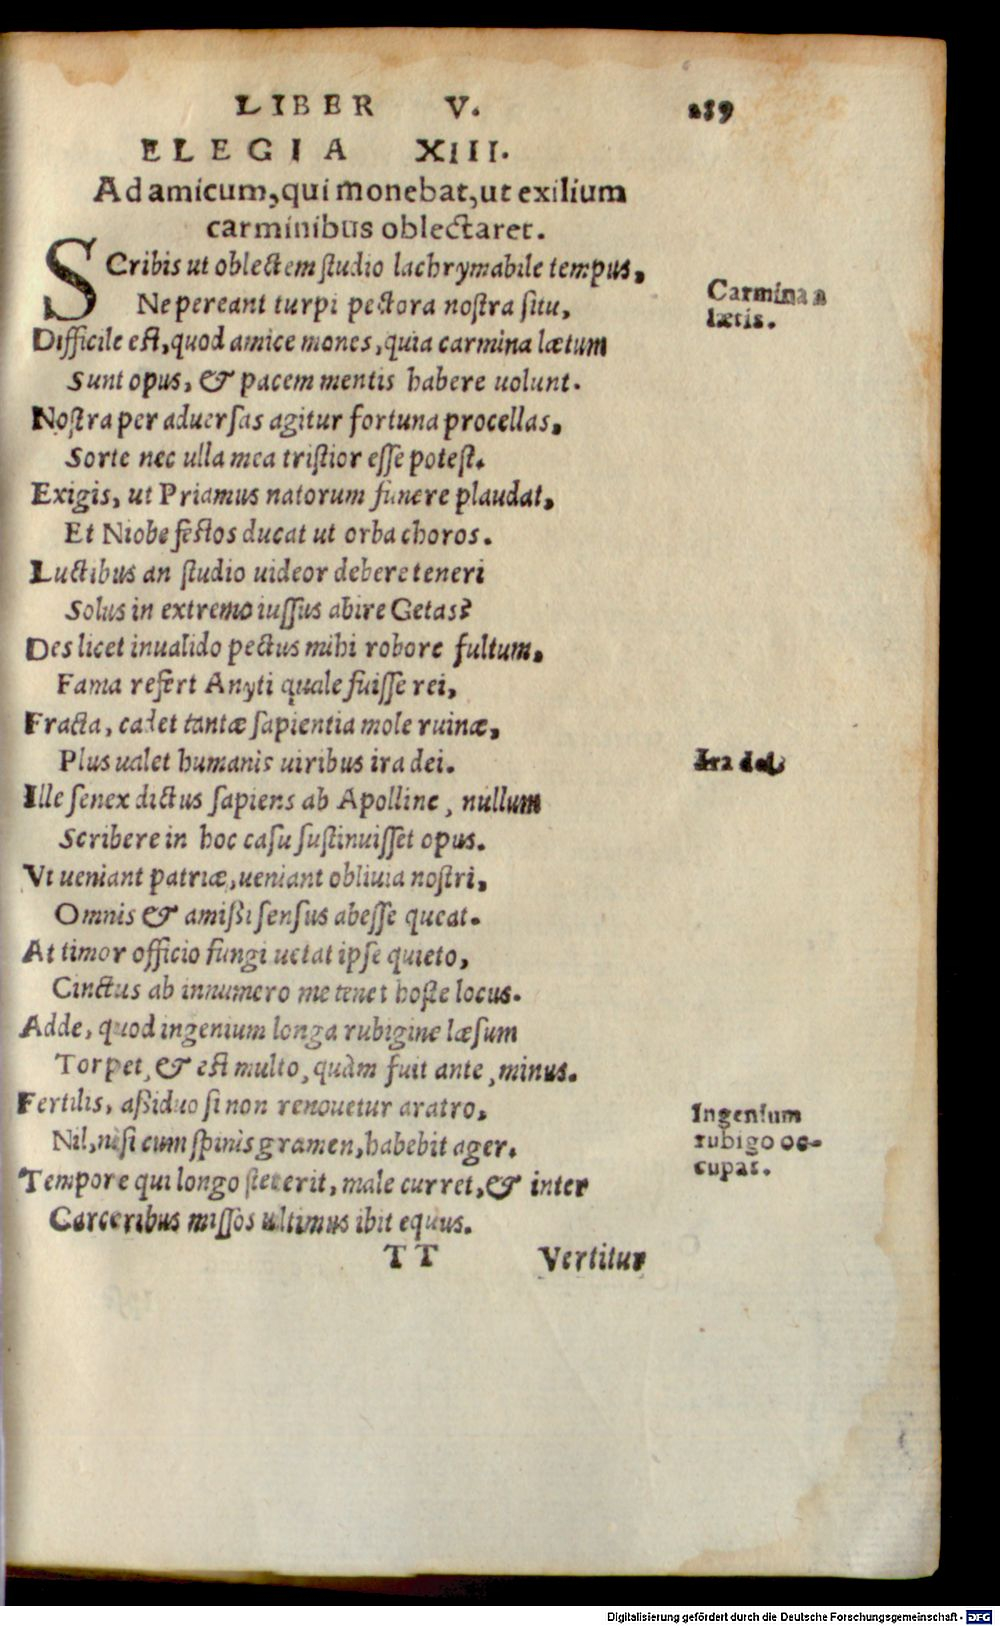 LIBER V. 289
ELEGIA XIII.
Ad amicum, qui monebat, ut exilium
carminibus oblectaret.
SCribis ut oblectem ſtudio lachrymabile tempus,
Ne pereant turpi pectora noſtra ſitu,
Carmina a
lætis.
Difficile eſt, quod amice mones, quia carmina lætum
Sunt opus, & pacem mentis habere uolunt.
Noſtra per aduerſas agitur fortuna procellas,
Sorte nec ulla mea triſtior eſſe poteſt.
Exigis, ut Priamus natorum funere plaudat,
Et Niobe feſtos ducat ut orba choros.
Luctibus an ſtudio uideor debere teneri
Solus in extremo iuſſus abire Getas?
Des licet inualido pectus mihi robore fultum,
Fama refert Anyti quale fuiſſe rei,
Fracta, cadet tantæ ſapientia mole ruinæ,
Plus ualet humanis uiribus ira dei.
Ira dei
Ille ſenex dictus ſapiens ab Apolline, nullum
Scribere in hoc caſu ſuſtinuiſſet opus.
Vt ueniant patriæ, ueniant obliuia noſtri,
Omnis & amißi ſenſus abeſſe queat.
At timor officio fungi uetat ipſe quieto,
Cinctus ab innumero me tenet hoſte locus.
Adde, quod ingenium longa rubigine læſum
Torpet, & eſt multo, quàm fuit ante, minus.
Fertilis, aßiduo ſi non renouetur aratro,
Nil, niſi cum ſpinis gramen, habebit ager.
Ingenium
rubigo oc-
cupat.
Tempore qui longo ſteterit, male curret, & inter
Carceribus miſſos ultimus ibit equus.
TT Vertitur
Digitalisierung gefördert durch die Deutsche Forschungsgemeinschaft - DFG